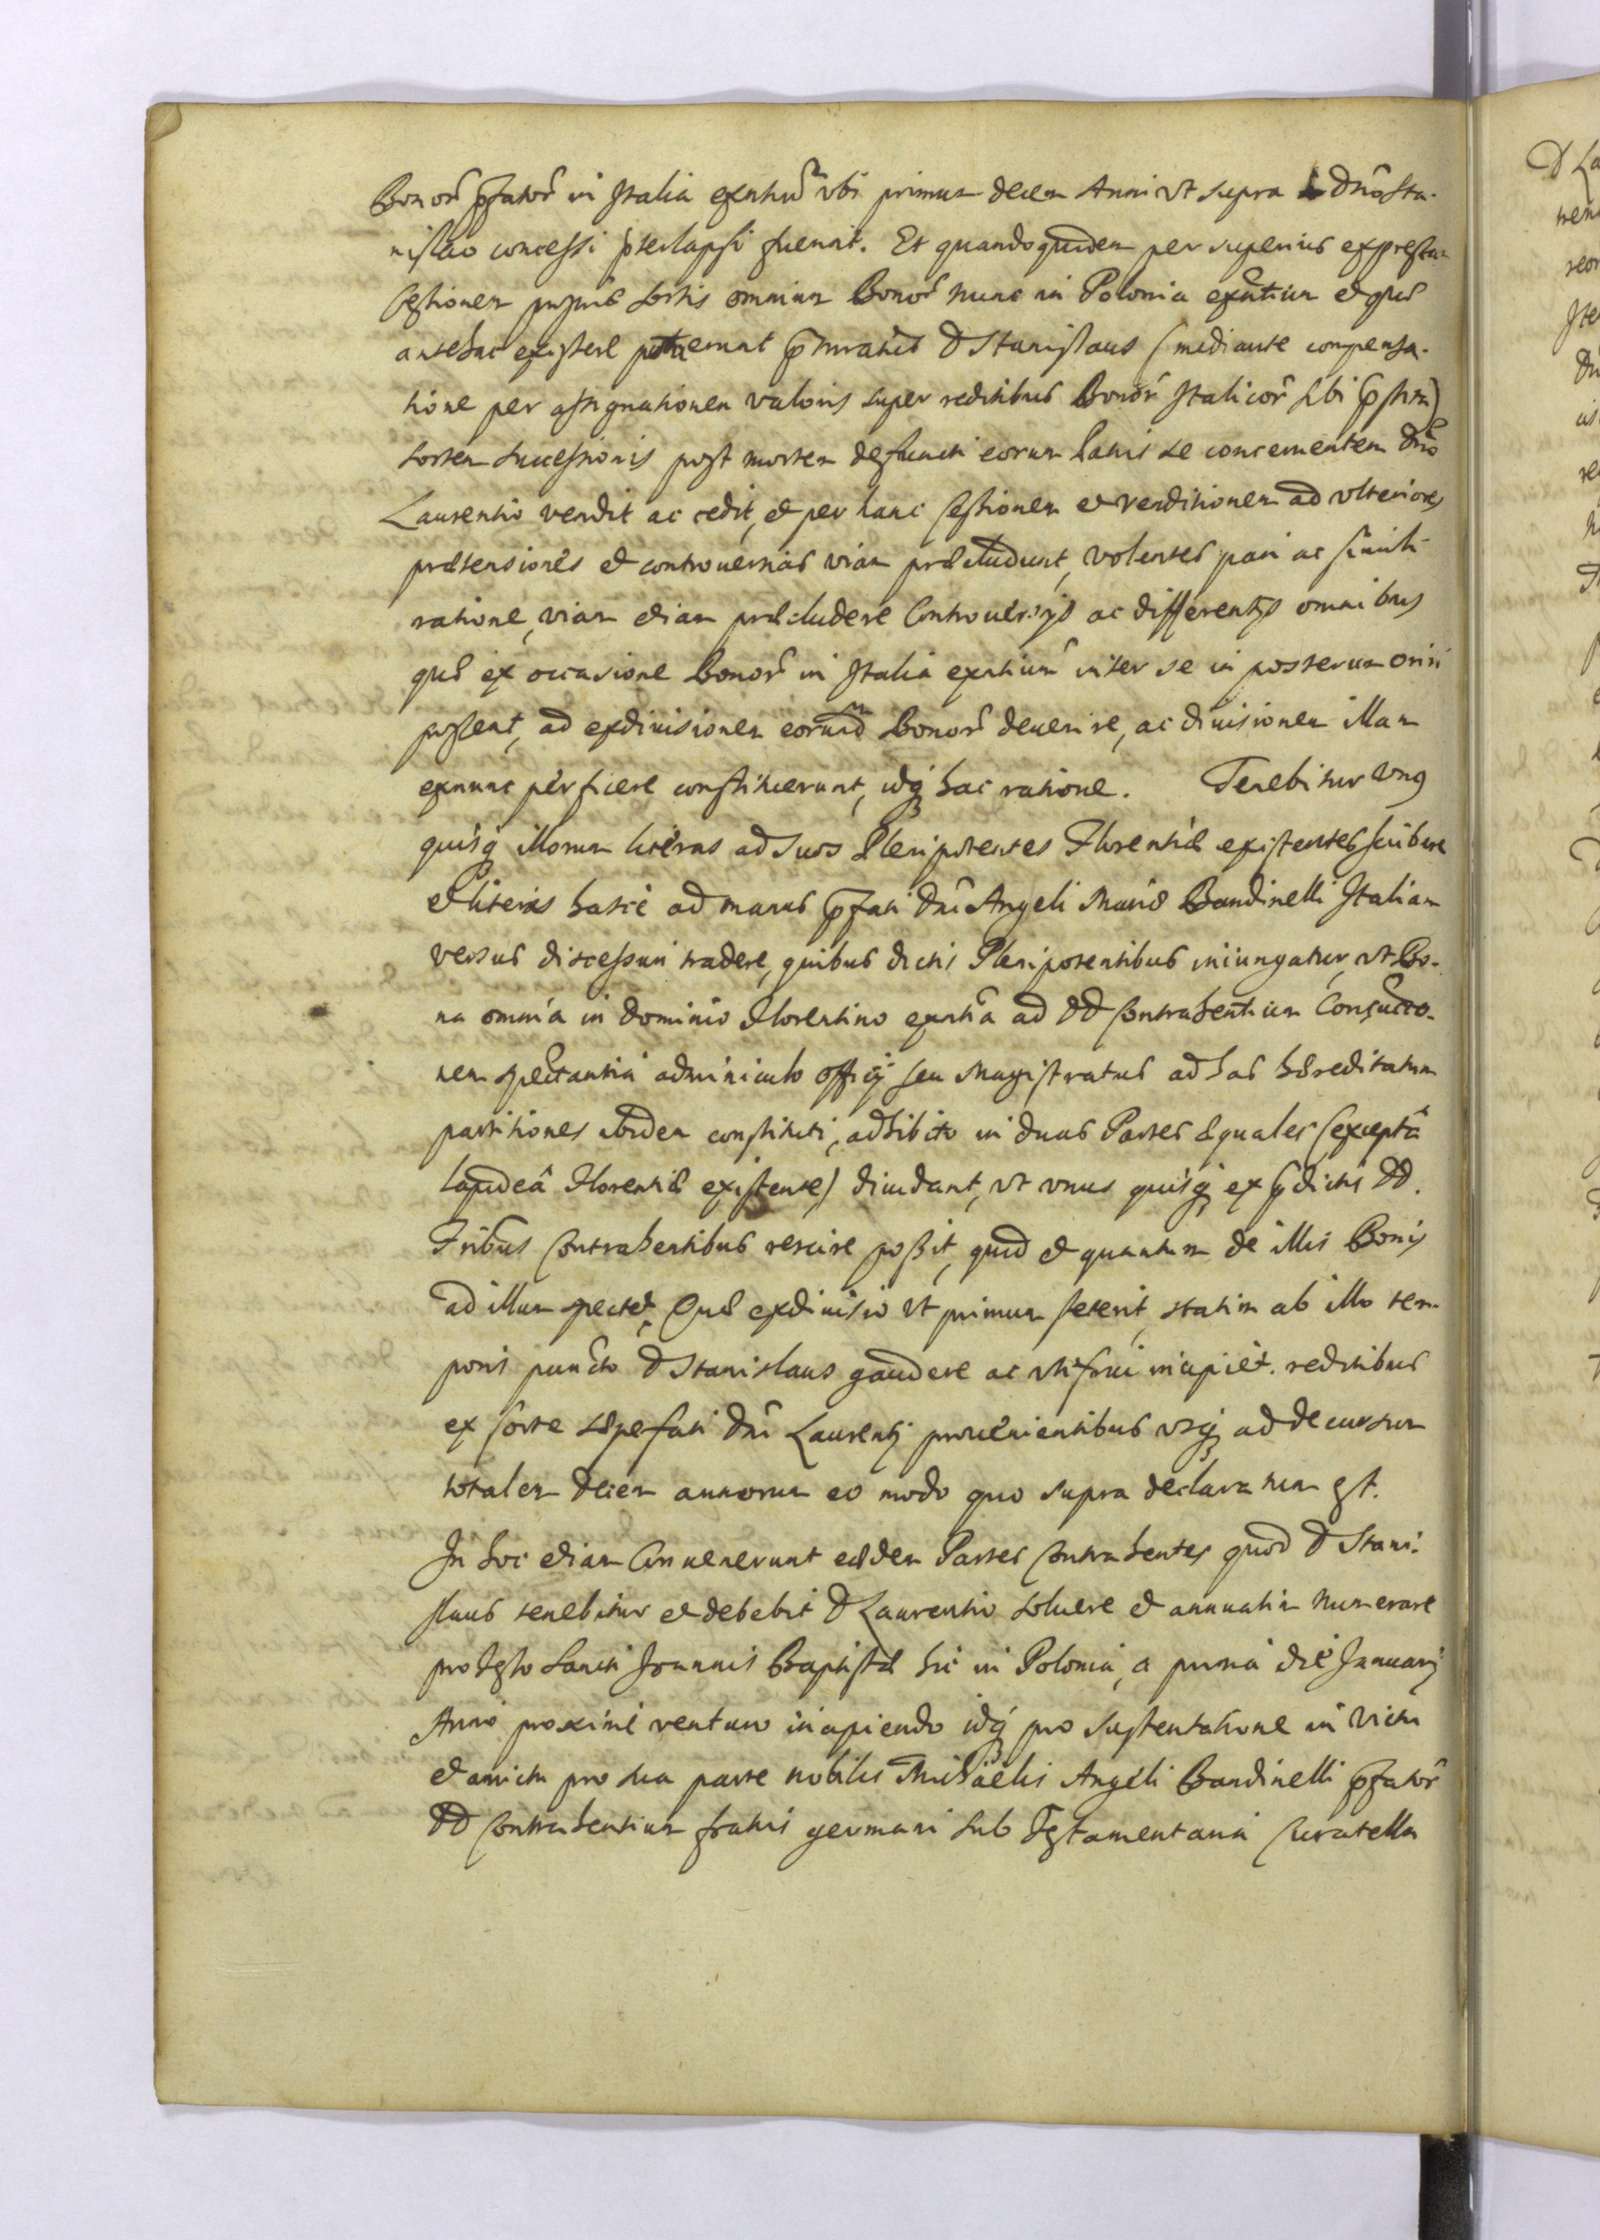 Bonor̃ p̃fator̃ in Italia exñtiũ vbi primum decem Anni vt supra Dño Sta-
nislao concessi p̃terlapsi fuerint. Et quandoquidem per superius expressam
Cessionem sortis omnium Bonor̃ nunc in Polonia exñtium et quæ
antehac existere potuerunt D Stanislaus (mediante compensa-
tione per assignationem valoris super reditibus Bonor̃ Italicor̃ sibi
sortem successionis post mortem defuncti eorum Patris se concernentem Dño
Laurentio vendit ac cedit, et per hanc Cessionem et venditionem ad vlteriores
prætensiones et controuersias viam præcludunt, volentes pari ac simili
ratione, viam etiam præcludere Controuersijs ac differentijs omnibus
quæ ex occasione Bonor̃ in Italia exñtium inter se in posterum oriri
possent, ad exdiuisionem eorund̃ Bonor̃ deuenire, ac diuisionem illam
exnunc perficere constituerunt, idq̃ hac ratione. Tenebitur vnus
quisq̃ illorum literas ad suos Plenipotentes Florentiæ existentes scribere
et literas hasce ad manus p̃fati Dñi Angeli Mariæ Bandinelli Italiam
versus discessuri tradere, quibus dictis Plenipotentibus iniungatur, vt Bo-
na omnia in Dominio Florentino exñtia ad DD Contrahentium
nem spectantia adminiculo officij seu Magistratus ad has hæreditatum
partitiones ibidem constituti, adhibito in duas Partes æquales (exceptâ
lapideâ Florentiæ existente) diuidant, vt vnus quisq̃ ex p̃dictis DD.
Fribus Contrahentibus rescire possit, quid et quantum de illis Bonis
ad illum spectet. Quæ exdiuisio vt primum steterit, statim ab illo tem-
poris puncto D Stanislaus gaudere ac vtifrui incipiet reditibus
ex sorte sæpefati Dñi Laurentij prouenientibus vsq̃ ad decursum
totalem decem annorum eo modo quo supra declaratum est.
In hoc etiam Conuenerunt eædem Partes Contrahentes quod D Stani-
slaus tenebitur et debebit D Laurentio soluere et annuatim numerare
pro Festo Sancti Joannis Baptistæ hic in Polonia, a prima die Januarij
Anno proximè venturo incipiendo idq̃ pro sustentatione in victu
et amictu pro sua parte nobilis Michaëlis Angeli Bandinelli p̃fator̃
DD Contrahentium fratris germani sub Testamentaria Curatella